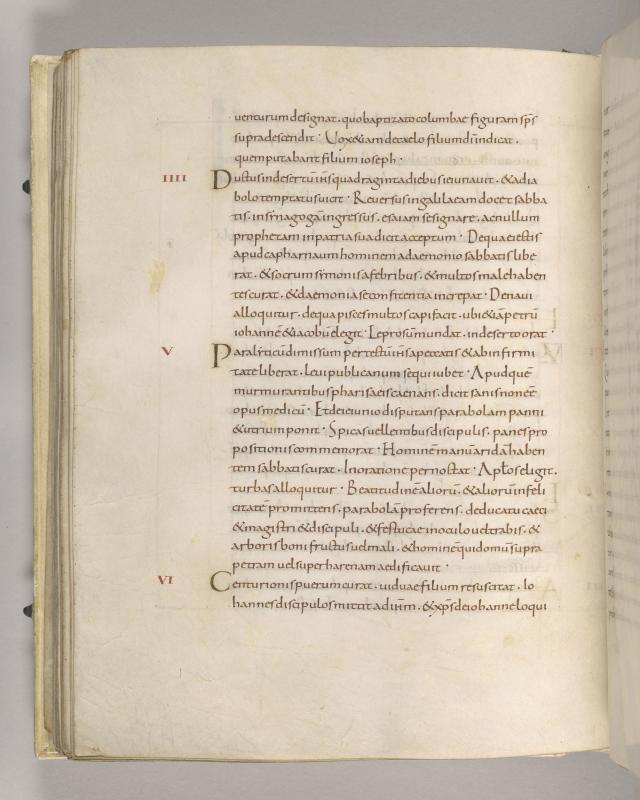 venturum designat. quo baptizato columbae figuram sp̄s
supradescendit. Vox etiam de caelo filium dī indicat.
quem putabant filium ioseph.
IIII Ductus in desertū ih̄s quadraginta diebus ieiunavit. & a dia
bolo temptatus vicit. Reversus in galilaeam docet sabba
tis. in synagogā ingressus. esaiam se signare. ac nullum
prophetam in patria sua dicit acceptum. De qua eiectis
apud capharnaum hominem a daemonio sabbatis libe
rat. & socrum symonis a febribus. & multos male haben
tes curat. & daemonia se confitentia increpat. De navi
alloquitur. de qua pisces multos capi facit. ubi & iā petrū
iohannē & iacobū elegit. Leprosū mundat. in deserto orat.
V Paralyticū dimissum per tectū ih̄s a peccatis & ab infirmi
tate liberat. Levi publicanum sequi iubet. Apud quē
murmurantibus pharisaeis caenans. dicit sanis non eē
opus medicū. Et de ieiunio disputans parabolam panni
& utrium ponit. Spicas vellentibus discipulis. panes pro
positionis commemorat. Hominē manū aridā haben
tem sabbatis curat. In oratione pernoctat. Aptōs eligit.
turbas alloquitur. Beatitudinē aliorū. & aliorū infeli
citatē promittens. parabolā proferens. de ducatu caeci
& magistri & discipuli. & festucae in oculo vel trabis. &
arboris boni fructus vel mali. & hominē qui domū supra
petram vel super harenam aedificavit.
VI Centurionis puerum curat. viduae filium resuscitat. Io
hannes discipulos mittit ad ih̄m. & xp̄s de iohanne loqui